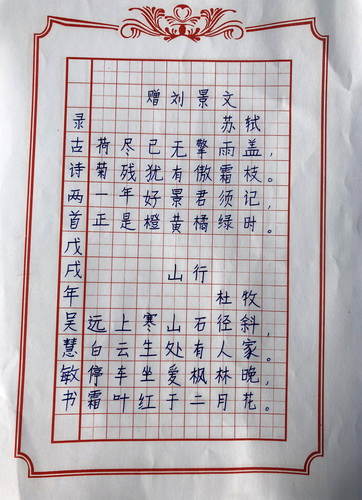 赠刘景文
苏轼
荷尽已无擎雨盖,
菊残犹有傲霜枝。
一年好景君须记,
正是橙黄橘绿时。
山行
杜牧
远上寒山石径斜,
白云生处有人家。
停车坐爱枫林晚,
霜叶红于二月花。
录古诗两首戊戌年吴慧敏书